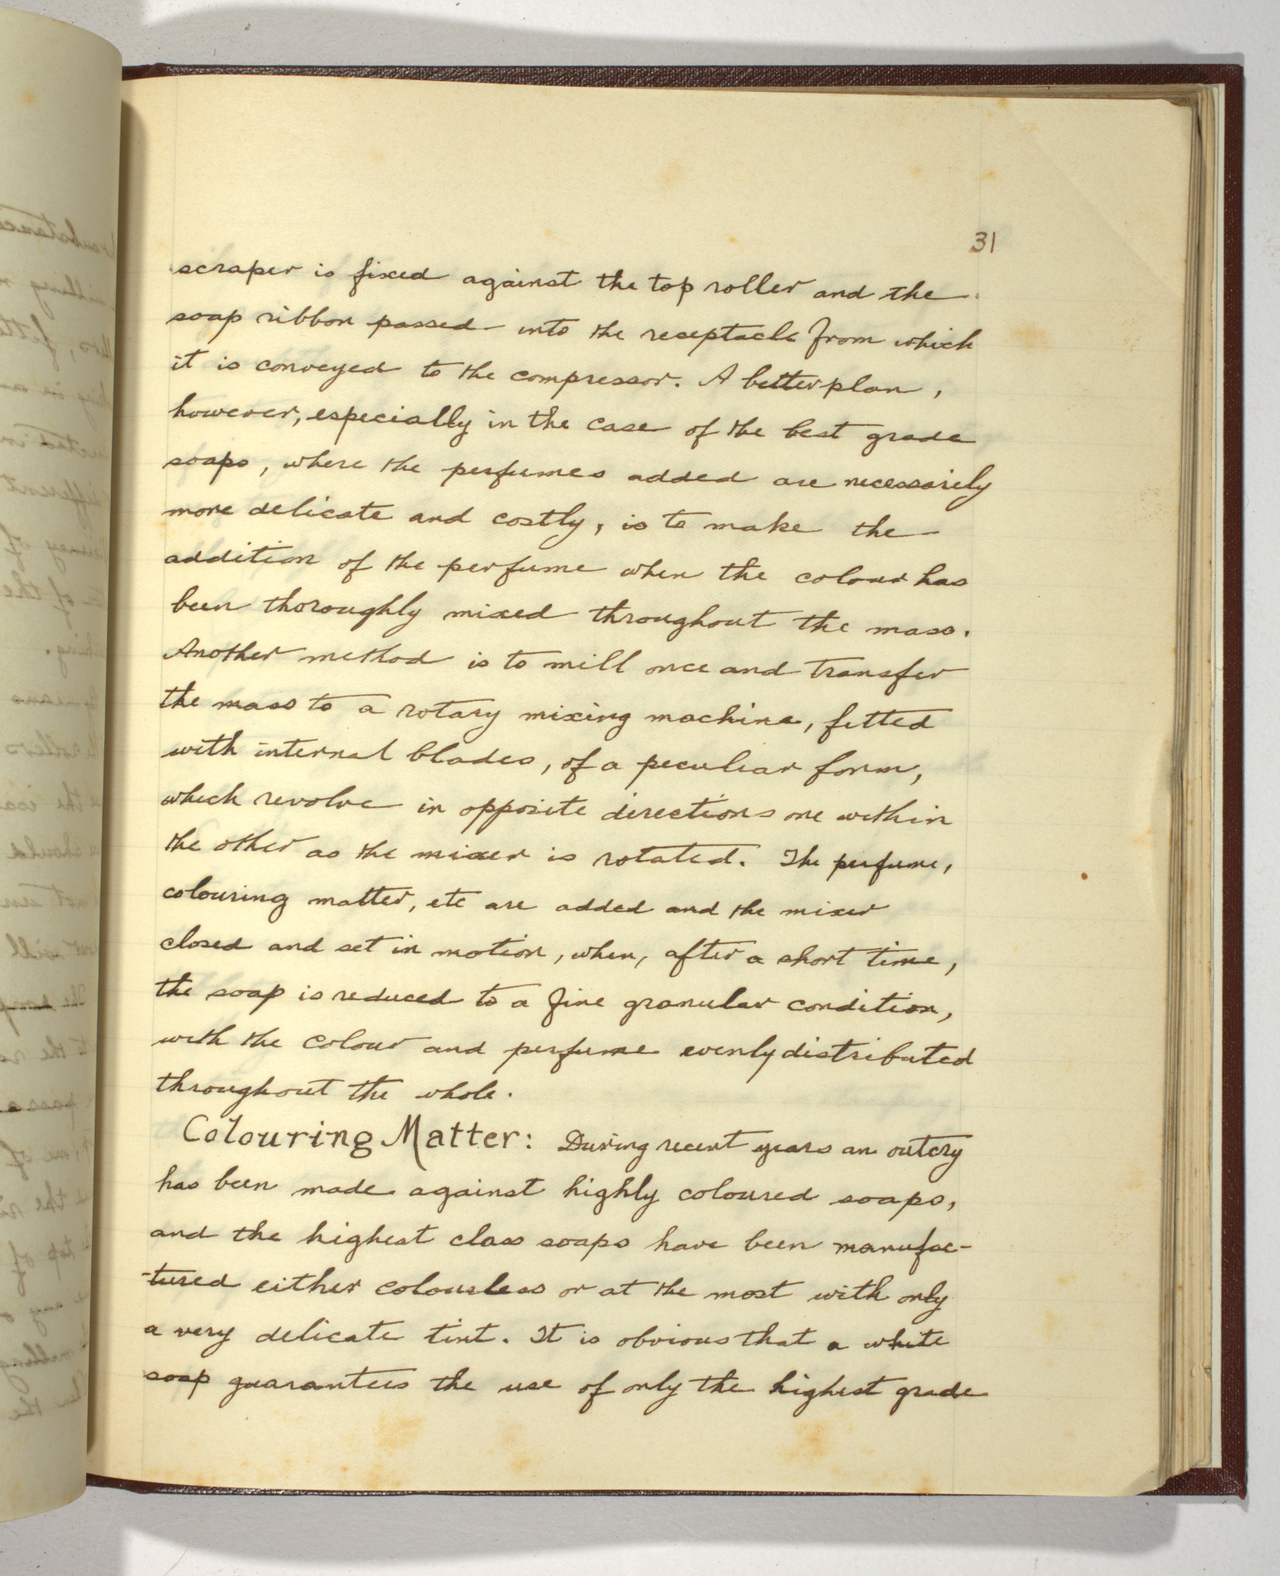 31
scraper is fixed against the top roller and the
soap ribbon passed into the receptacle from which
it is conveyed to the compressor. A better plan,
however, especially in the case of the best grade
soaps, where the perfumes added are necessarily
more delicate and costly, is to make the
addition of the perfume when the colour has
been thoroughly mixed throughout the mass.
Another method is to mill once and transfer
the mass to a rotary mixing machine, fitted
with internal blades, of a peculiar form,
which revolve in opposite directions one within
the other as the mixer is rotated. The perfume,
colouring matter, etc are added and the mixer
closed and set in motion, when, after a short time,
the soap is reduced to a fine granular condition,
with the colour and perfume evenly distributed
throughout the whole.
Colouring Matter: During recent years an outcry
has been made against highly coloured soaps,
and the highest class soaps have been manufac-
-tured either colourless or at the most with only
a very delicate tint. It is obvious that a white
soap guarantees the use of only the highest grade